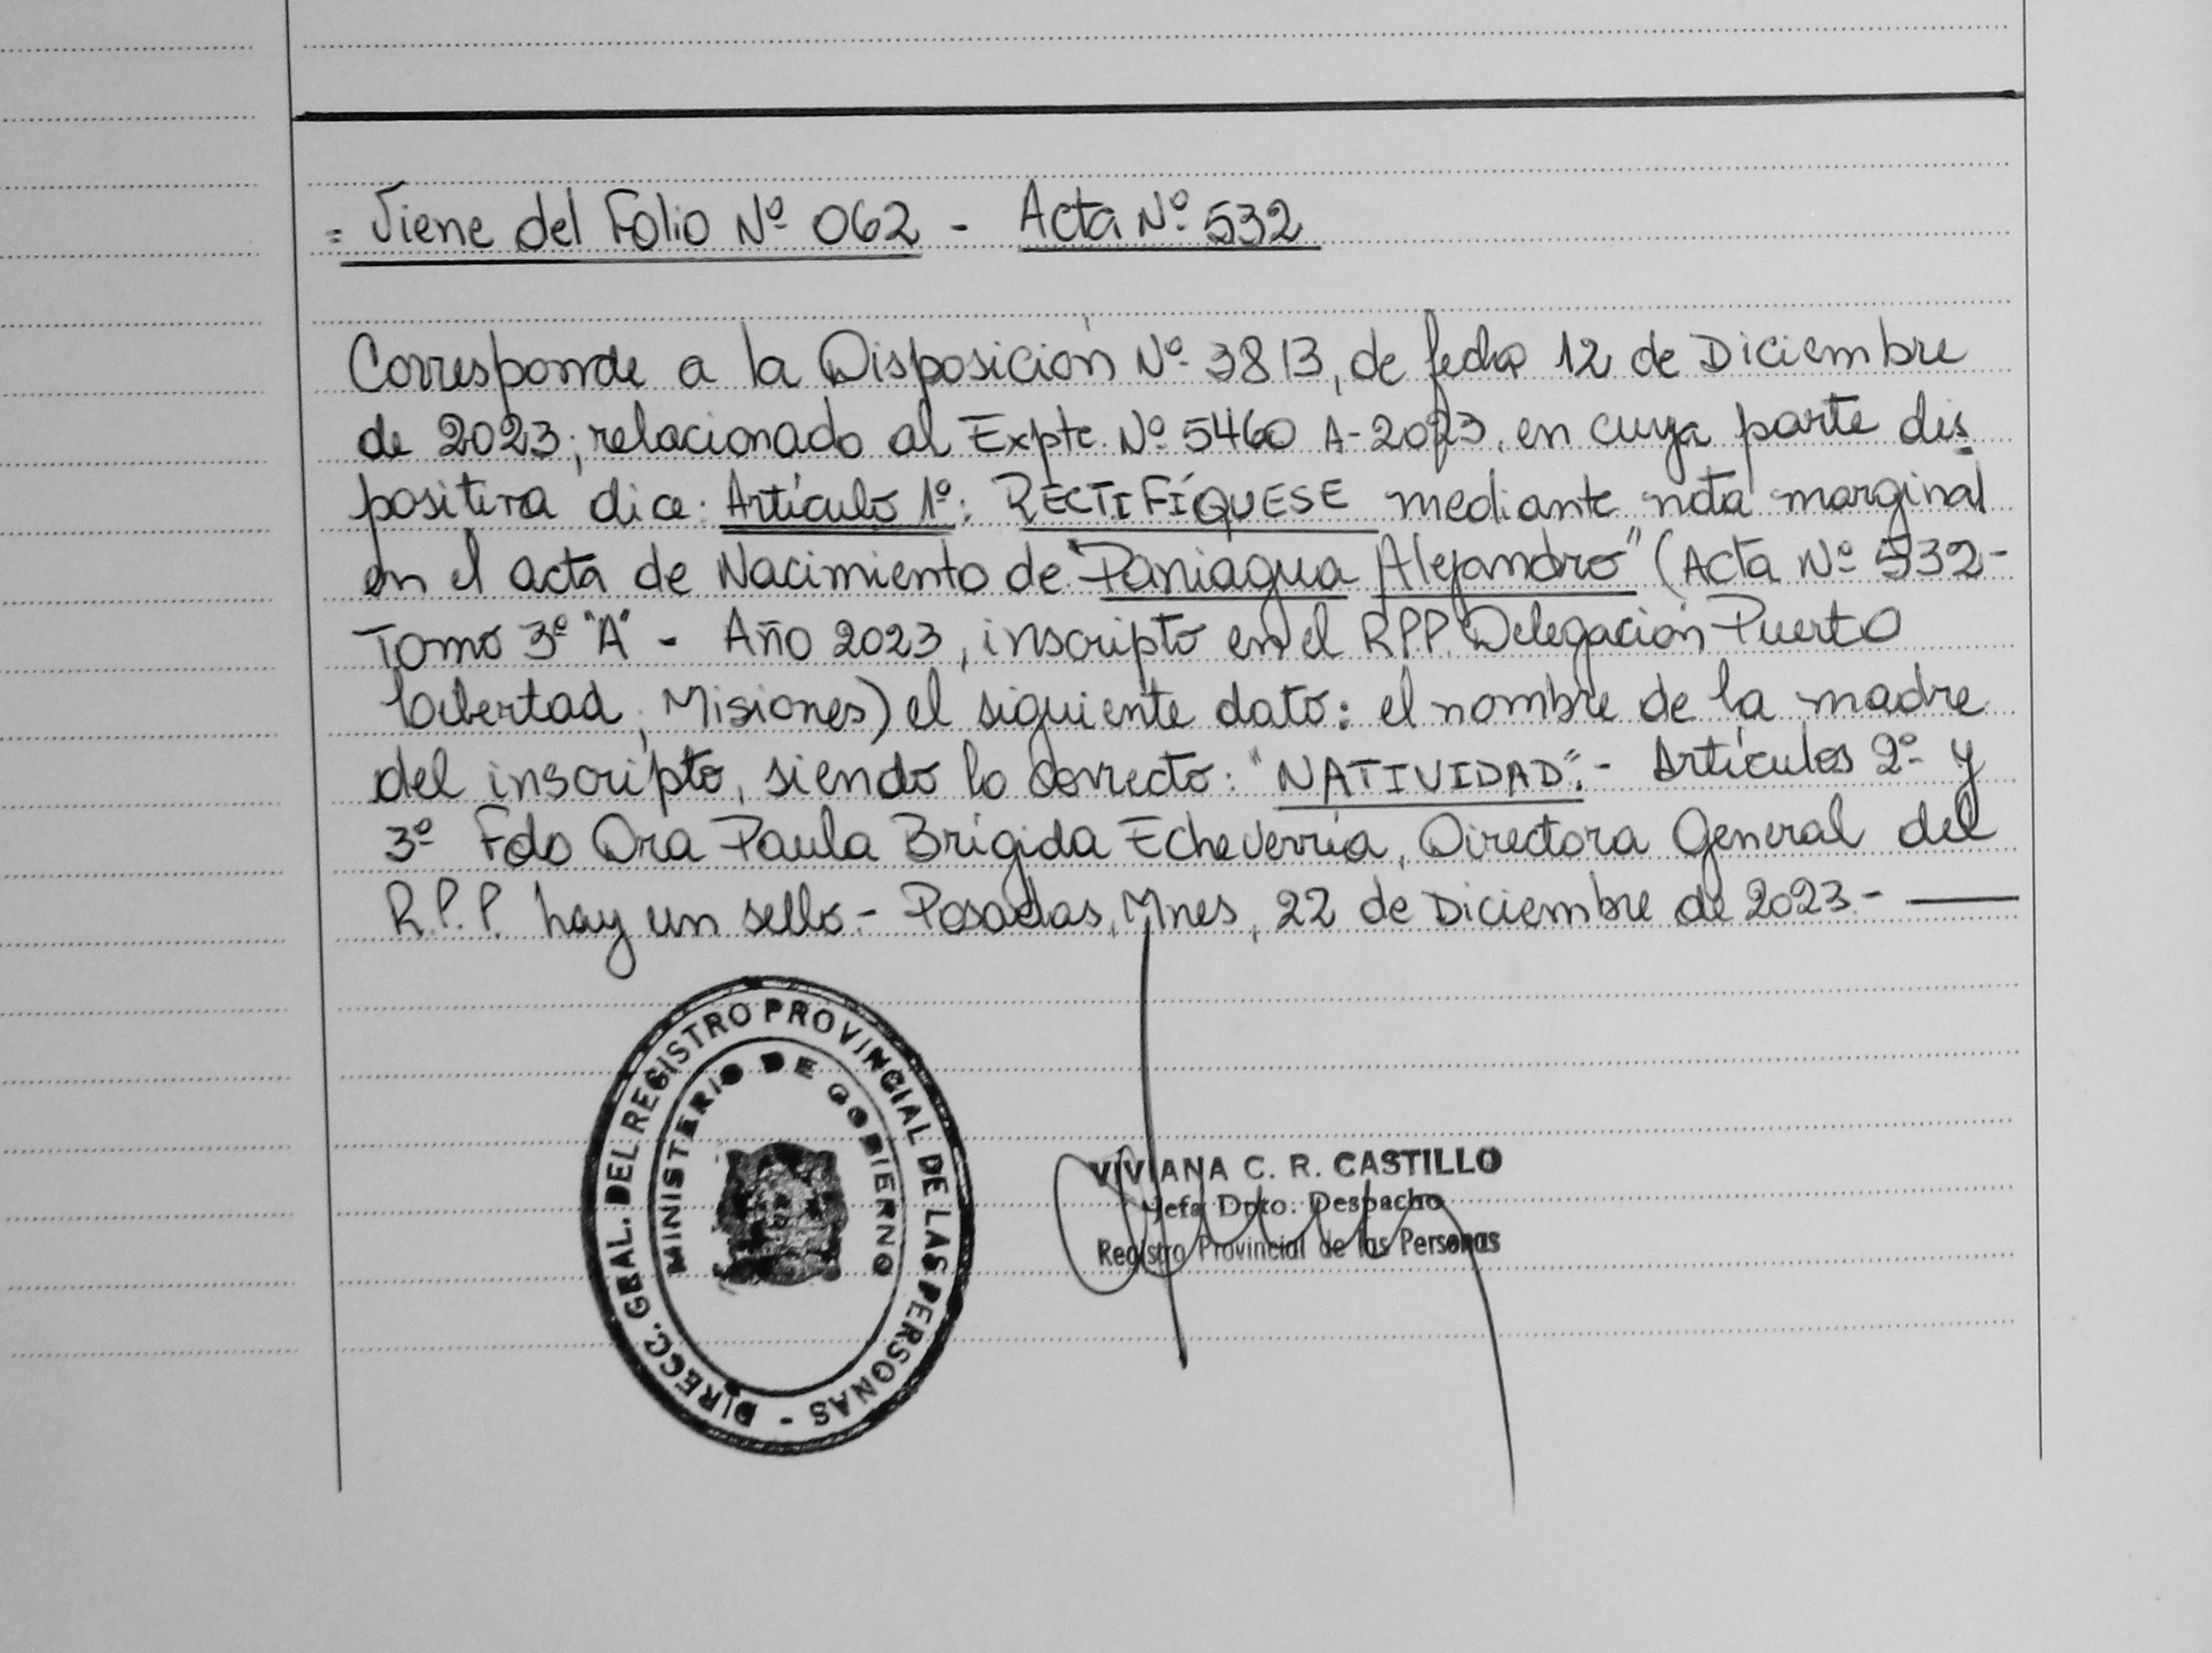 = Viene del Folio Nº 062 - Acta Nº 532
Corresponde a la Disposición Nº 3813, de fecha 12 de Diciembre
de 2023, relacionado al Expte. Nº 5460 A-2023, en cuya parte dis
positiva dice: Artículo 1º: RECTIFÍQUESE mediante nota marginal
en el acta de Nacimiento de "Paniagua Alejandro" (Acta Nº 532-
Tomo 3º "A" - Año 2023, inscripto en el R.P.P. Delegación Puerto
Libertad, Misiones) el siguiente dato: el nombre de la madre
del inscripto, siendo lo correcto: "NATIVIDAD".- Artículos 2º y
3º Fdo Dra Paula Brígida Echeverría, Directora General del
R.P.P. hay un sello.- Posadas, Mnes, 22 de Diciembre de 2023.-
DIRECC. GRAL. DEL REGISTRO PROVINCIAL DE LAS PERSONAS -
MINISTERIO DE GOBIERNO
VIVIANA C. R. CASTILLO
Jefa Dpto. Despacho
Registro Provincial de las Personas